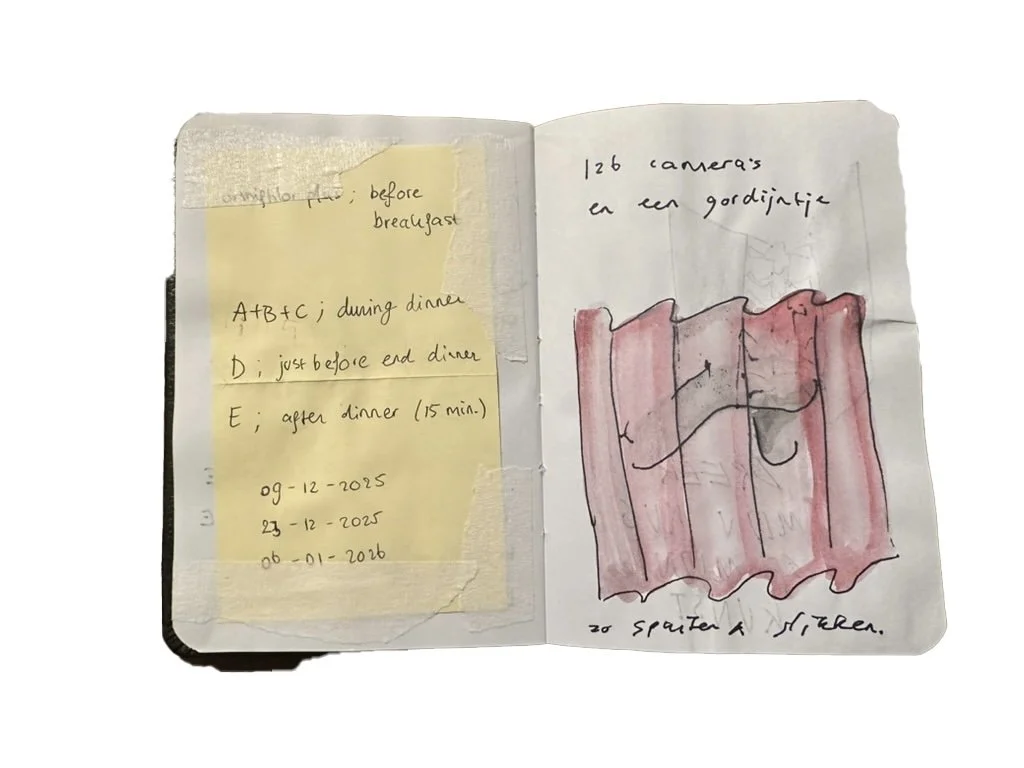 plus; before
breakfast
A+B+C; during dinner
D; just before end dinner
E; after dinner (15 min.)
09-12-2025
23-12-2025
06-01-2026
126 camera's
en een gordijntje
zo spuiten & slikken.